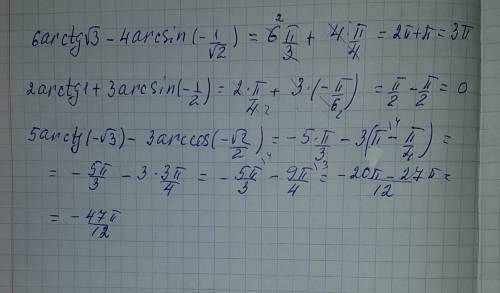 6arctg√3 - 4arcsin(-1/√2) = 6² π/3 + 4·π/4 = 2π+π = 3π
2arctg1 + 3arcsin(-1/2) = 2·π/4·2 + 3·(-π/6₂) = π/2 - π/2 = 0
5arctg(-√3) - 3arccos(-√2/2) = -5·π/3 - 3(π^\4 - π/4) =
= -5π/3 - 3·3π/4 = -5π/3^\4 - 9π/4^\3 = (-20π-27π)/12 =
= -47π/12